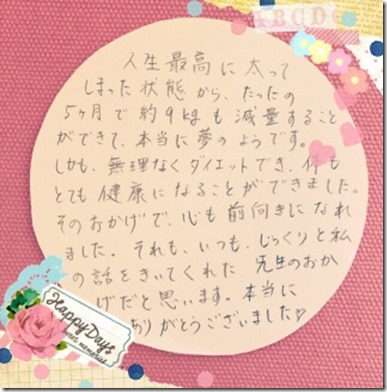 ABCD
人生最高に太って
しまった状態から、たったの
5ヶ月で約9kgも減量すること
ができて、本当に夢のようです。
しかも、無理なくダイエットでき、体も
とても健康になることができました。
そのおかげで、心も前向きになれ
ました。それも、いつも、じっくりと私
の話をきいてくれた、先生のおか
げだと思います。本当に
ありがとうございました♡
Happy Days